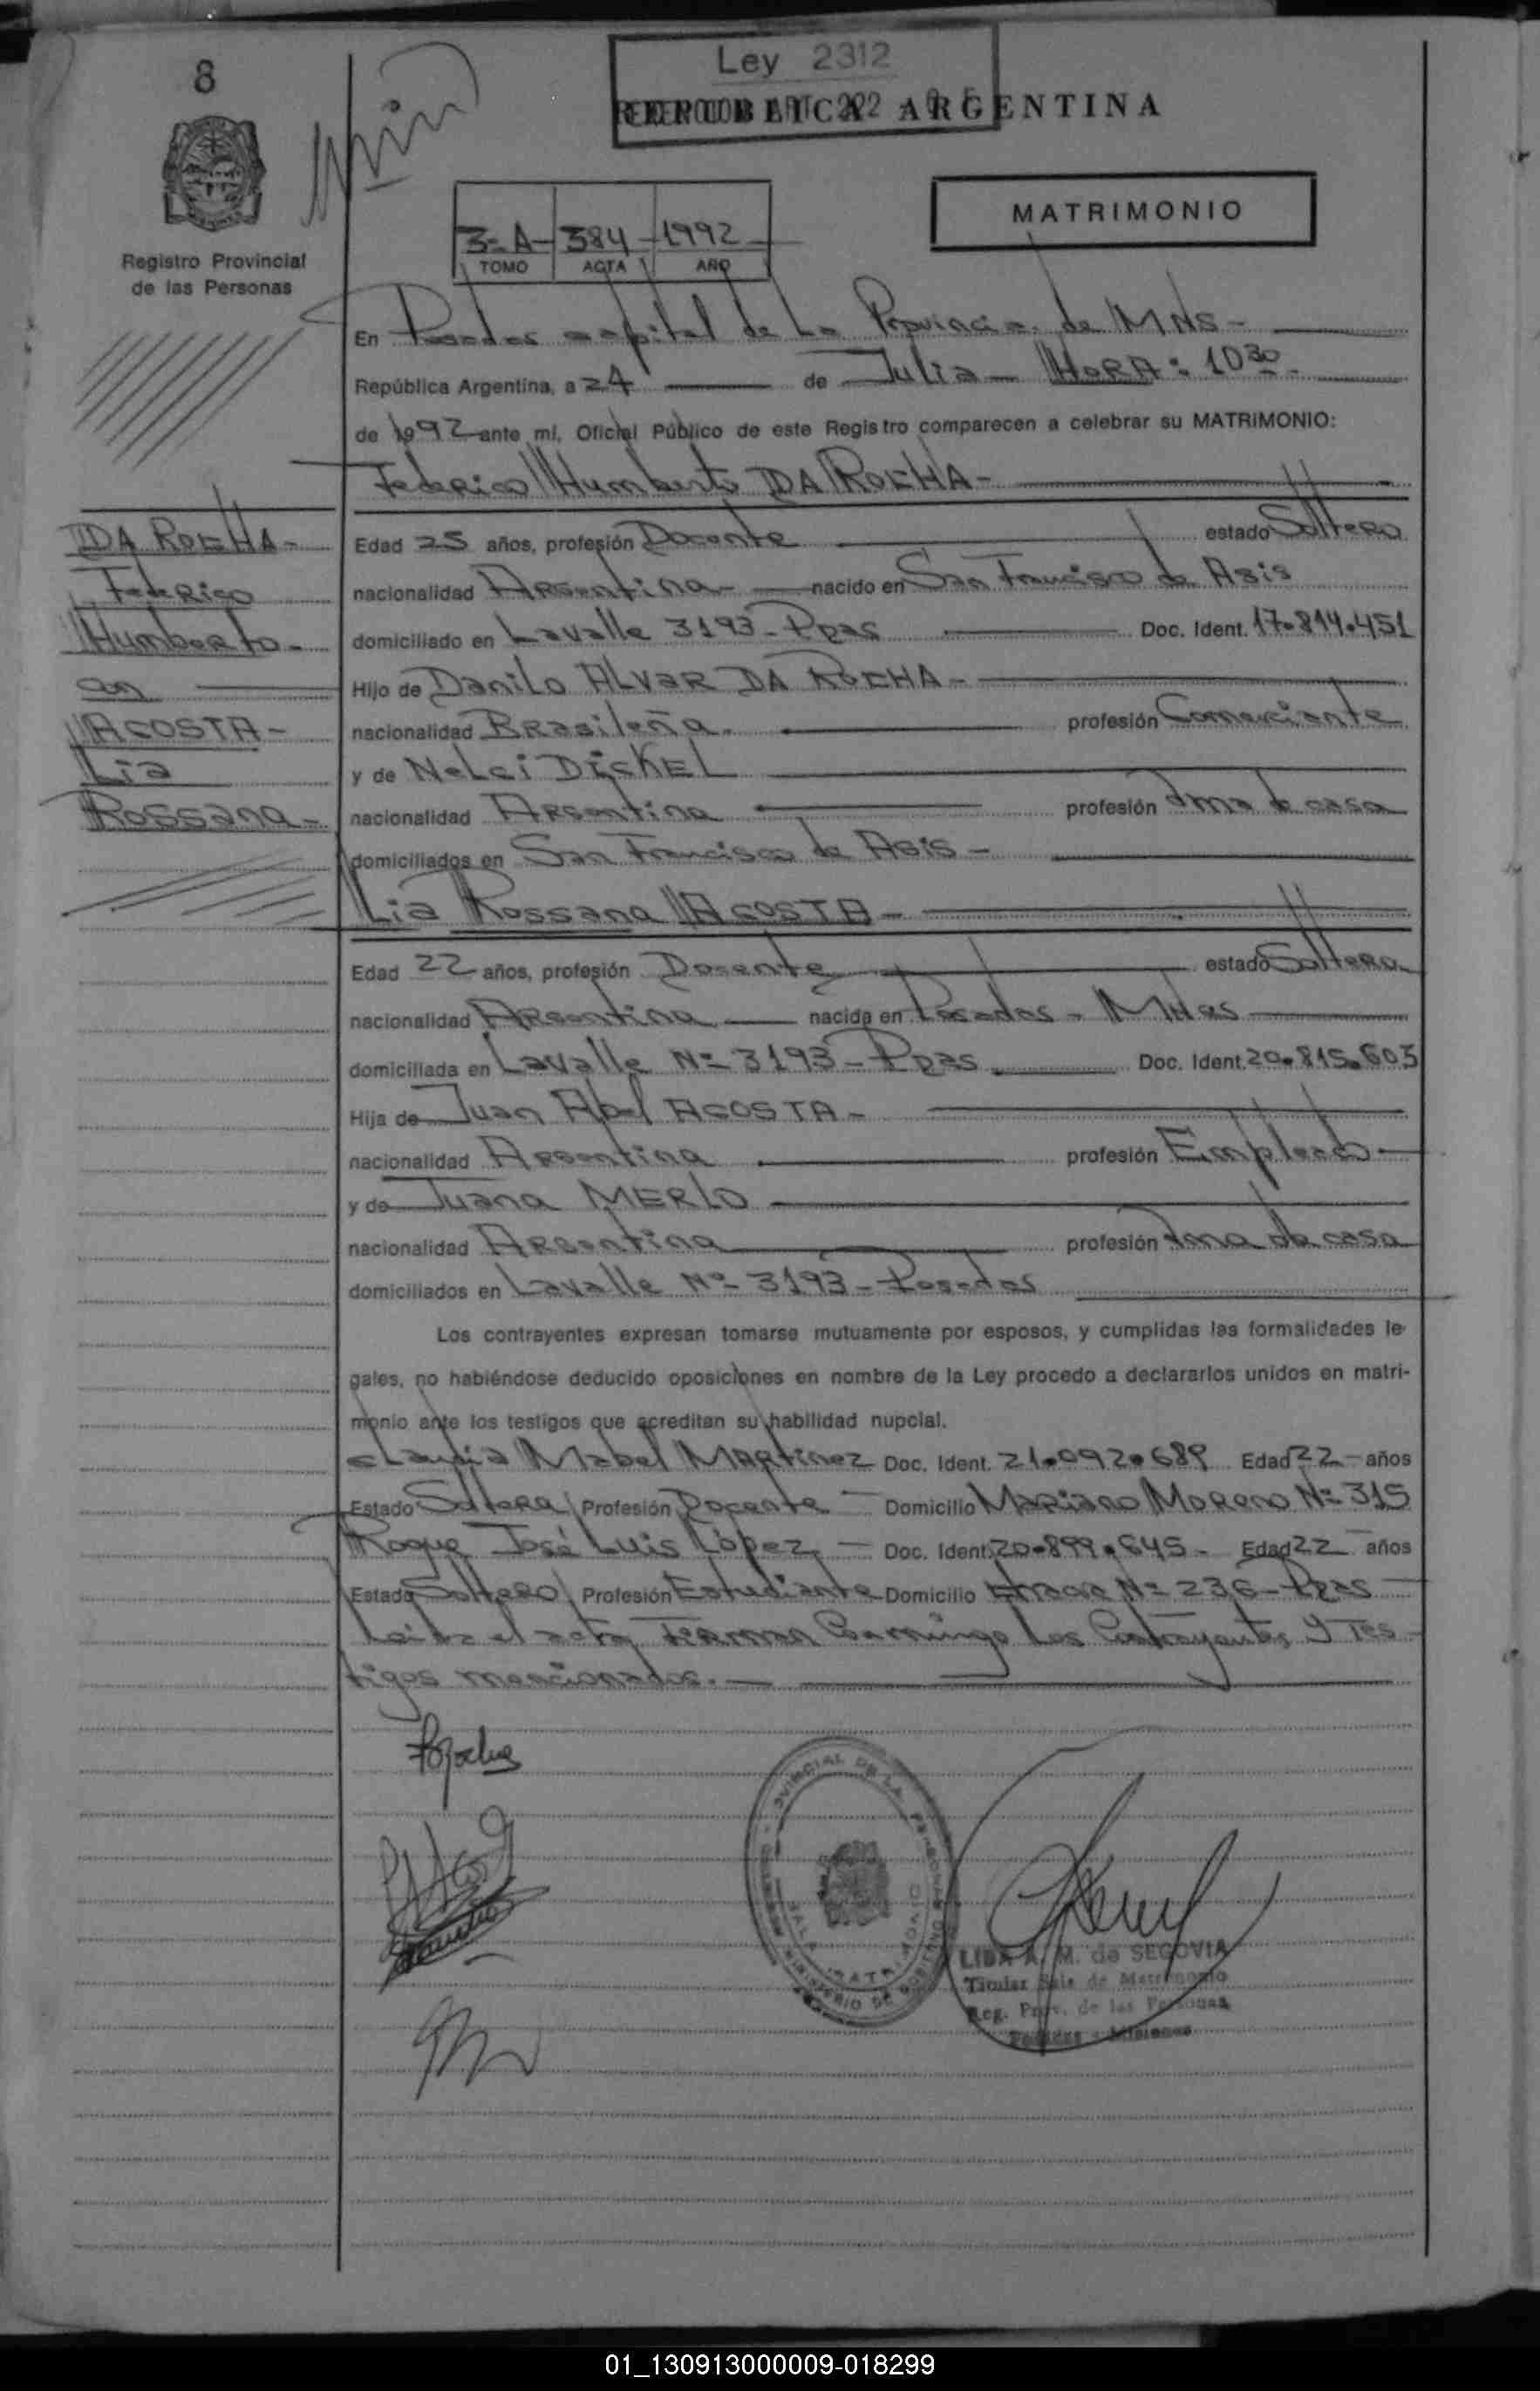 8
Ley 2312
REPUBLICA ARGENTINA
MATRIMONIO
3= A- 384 -1992-
TOMO ACTA AÑO
Registro Provincial
de las Personas
En Posadas capital de La Provincia de MNS-
República Argentina, a 24 de Julio - HORA: 10 30
de 1992 ante mí, Oficial Público de este Registro comparecen a celebrar su MATRIMONIO:
Federico Humberto DA ROCHA-
DA ROCHA-
Federico
Humberto-
con
ACOSTA-
Lia
Rossana-
Edad 25 años, profesión Docente estado Soltero
nacionalidad Argentina- nacido en San Francisco de Asis
domiciliado en Lavalle 3193- Ppas Doc. Ident. 17.814.451
Hijo de Danilo ALVAR DA ROCHA-
nacionalidad Brasileña. profesión Comerciante
y de Nelci DICKEL
nacionalidad Argentina profesión Ama de casa
domiciliados en San Francisco de Asis-
Lia Rossana ACOSTA-
Edad 22 años, profesión Docente estado Soltera
nacionalidad Argentina nacida en Posadas-
domiciliada en Lavalle Nº 3193- Ppas Doc. Ident. 20.815.603
Hija de Juan Abel ACOSTA-
nacionalidad Argentina profesión Empleado
y de Juana MERLO
nacionalidad Argentina profesión Ama de casa
domiciliados en Lavalle Nº 3193- Posadas
Los contrayentes expresan tomarse mutuamente por esposos, y cumplidas las formalidades le
gales, no habiéndose deducido oposiciones en nombre de la Ley procedo a declararlos unidos en matri-
monio ante los testigos que acreditan su habilidad nupcial.
Claudia Mabel Martinez Doc. Ident. 21.092.689 Edad 22 años
Estado Soltera Profesión Docente Domicilio Mariano Moreno Nº 315
Roque José Luis López Doc. Ident. 20.899.645- Edad 22 años
Estado Soltero Profesión Estudiante Domicilio Nº 236- Ppas
Leida el acta Firman Conmigo Los Contrayentes Y Tes
tigos mencionados.-
LIDA A. M. de SEGOVIA
Titular Sala de Matrimonio
Reg. Prov. de las Personas
Posadas - Misiones
01_130913000009-018299